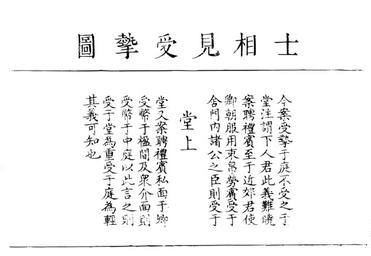 士相見受摯圖
今案受摯于庭不受之于
堂注謂下人君此義難曉
案聘禮賓至于近郊君使
卿朝服用束帛勞賓受于
舍門內諸公之臣則受于
堂上
堂又案聘禮賓私面于卿
受幣于楹間及衆介面則
受幣于中庭以此言之則
受于堂為重受于庭為輕
其義可知也